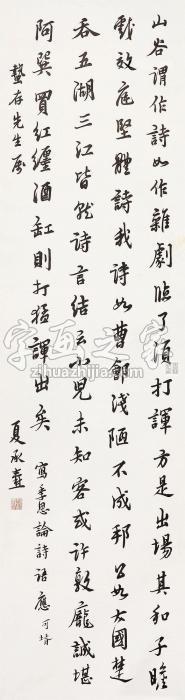 山谷謂作詩如作雜劇臨了須打諢方是出場其和子瞻
戲效庭堅體詩我詩如曹鄶淺陋不成邦公如大國楚
吞五湖三江皆就詩言結云小兒未知客或許敦龐誠堪
阿巽買紅纏酒缸則打猛諢出矣
寫季思論詩語應
蟄存先生屬
夏承燾
字画之家
zihuazhijia.com